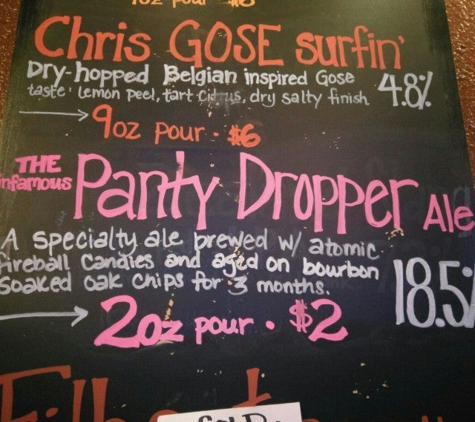 1oz pour $6
Chris GOSE surfin'
Dry-hopped Belgian inspired Gose
taste lemon peel, tart citrus, dry salty finish
4.8%
9oz pour · $6
THE
infamous
Panty Dropper Ale
A specialty ale brewed w/ atomic
fireball candies and aged on bourbon
soaked oak chips for 3 months.
18.5%
2oz pour · $2